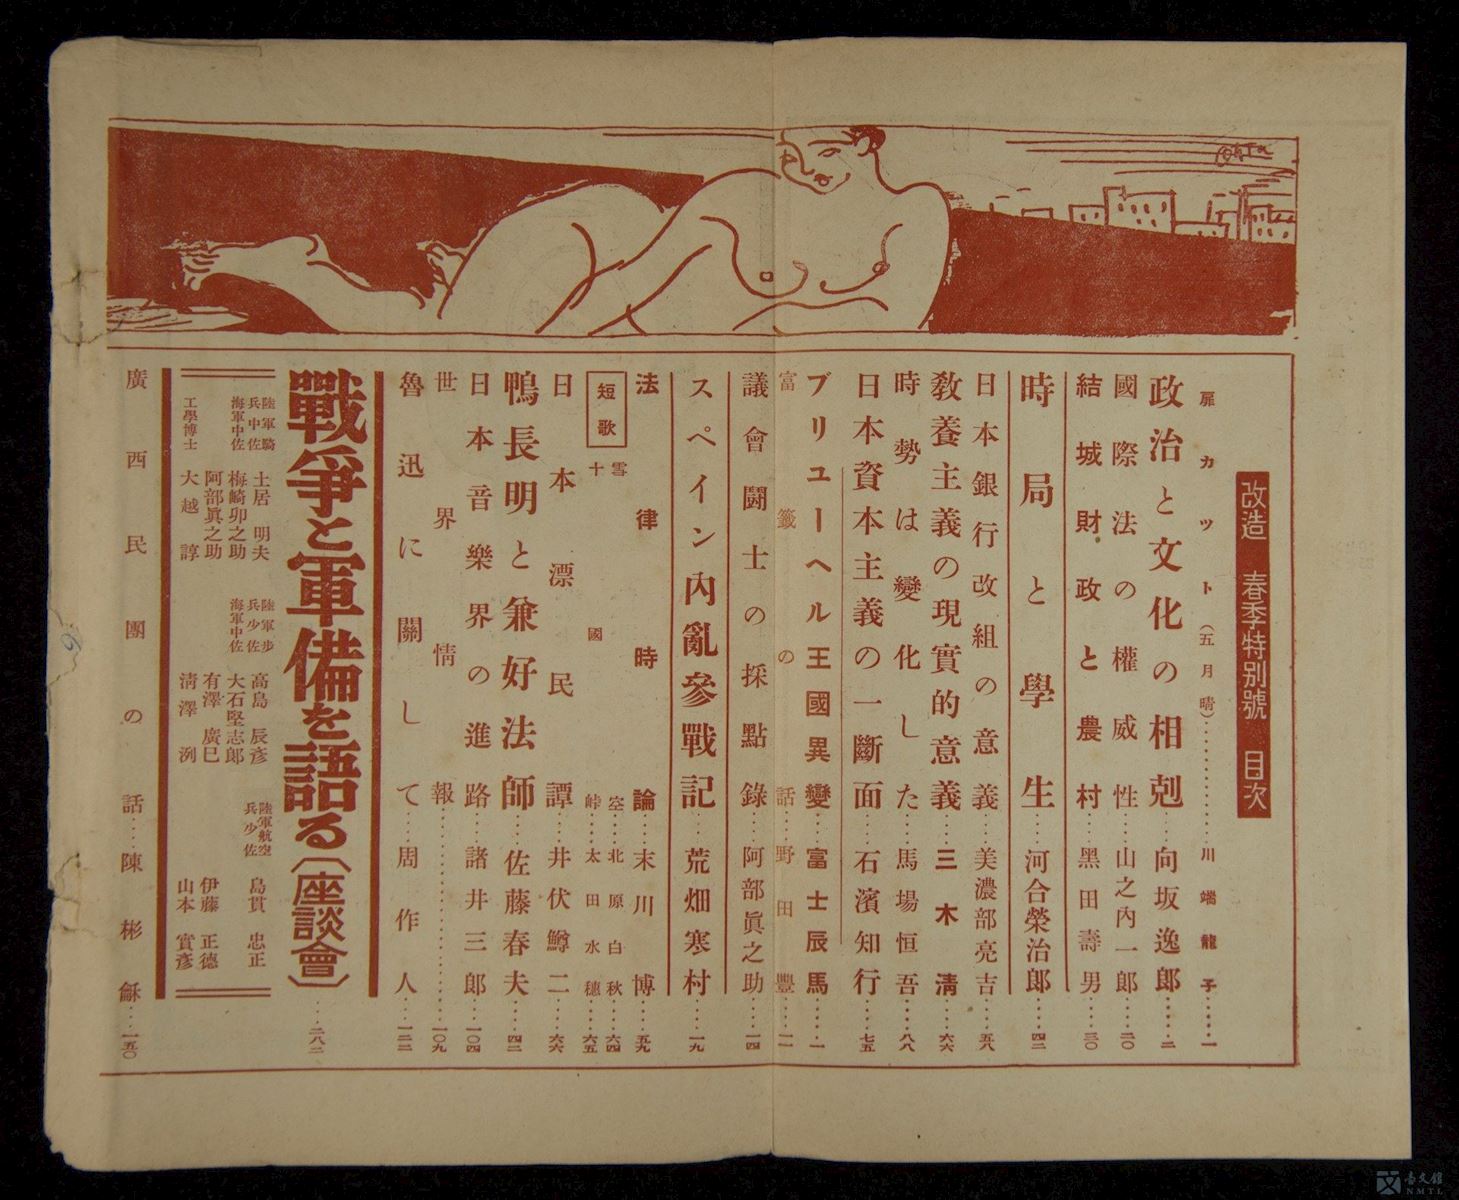 改造 春季特別號 目次
扉カット(五月晴)…………川端龍子……一
政治と文化の相剋…向坂逸郎……二
國際法の權威性…山之內一郎……二〇
結城財政と農村…黑田壽男……三〇
時局と學生…河合榮治郎……四二
日本銀行改組の意義…美濃部亮吉……五八
敎養主義の現實的意義…三木淸……六六
時勢は變化した…馬場恒吾……八八
日本資本主義の一斷面…石濱知行……七五
ブリユーヘル王國異變…富士辰馬……一
富籤の話…野田豐……一一
議會鬪士の採點錄…阿部眞之助……一四
スペイン內亂參戰記…荒畑寒村……一九
法律時論…末川博……五九
短歌
雪空…北原白秋……六四
十國峠…太田水穗……六五
日本漂民譚…井伏鱒二……六六
鴨長明と兼好法師…佐藤春夫……四二
日本音樂界の進路…諸井三郎……一〇四
世界情報……一〇九
魯迅に關して…周作人……一二二
戰爭と軍備を語る(座談會)……二八二
陸軍騎兵中佐 土居明夫
海軍中佐 梅崎卯之助
阿部眞之助
工學博士 大越諄
陸軍步兵少佐 高島辰彥
海軍中佐 大石堅志郎
有澤廣巳
淸澤洌
陸軍航空兵少佐 島貫忠正
伊藤正德
山本實彥
廣西民團の話…陳彬龢……一五〇
文 臺文館
NMTL